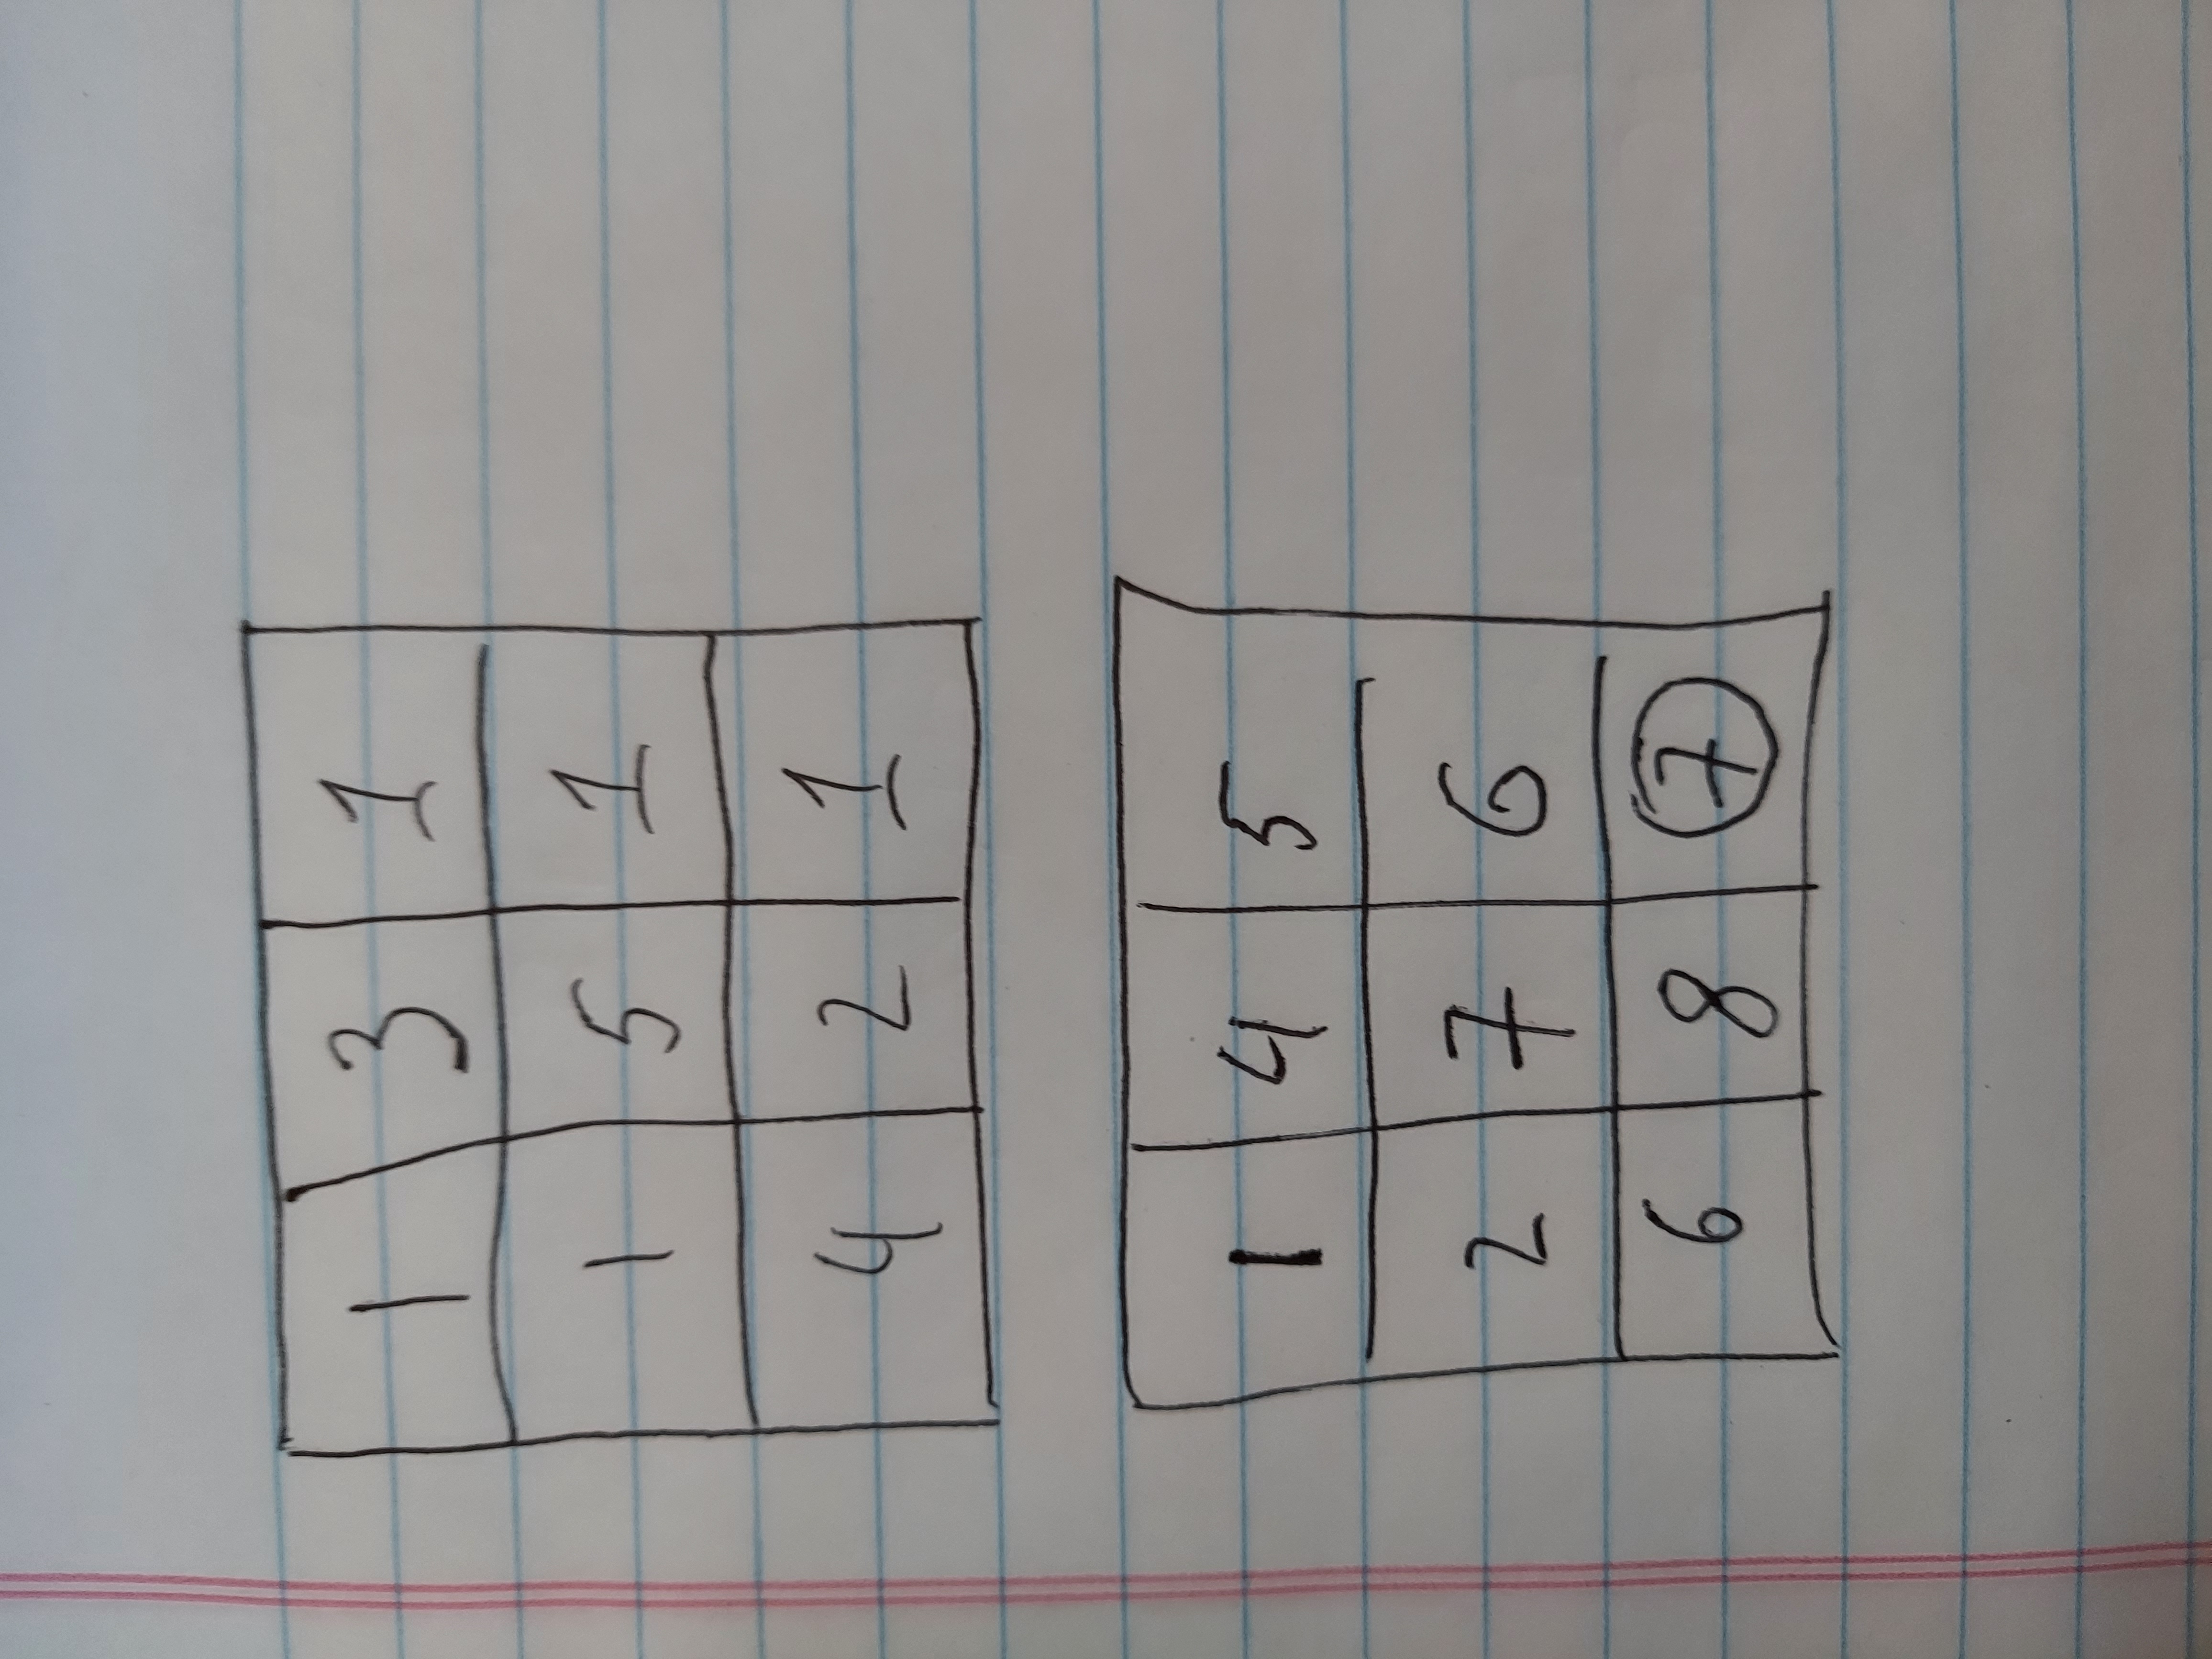 1 3 1
1 5 1
4 2 1
1 4 5
2 7 6
6 8 7